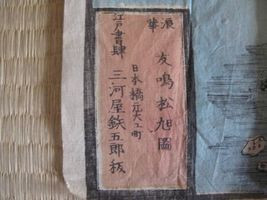 浪華
友鳴松旭圖
日本橋元大工町
江戸書肆
三河屋鉄五郎板